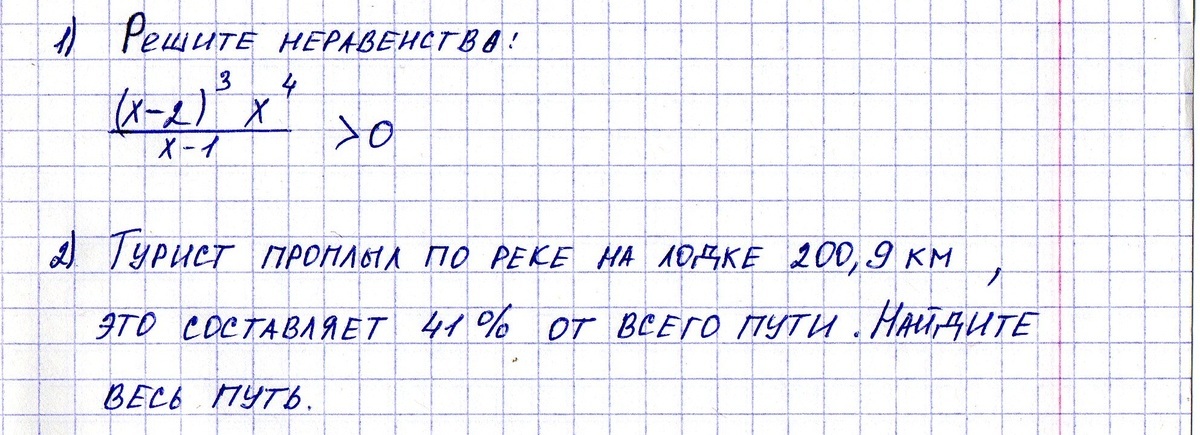 1) Решите неравенства:
(x-2)³ x⁴
x-1 >0
2) Турист проплыл по реке на лодке 200,9 км,
это составляет 41% от всего пути. Найдите
весь путь.